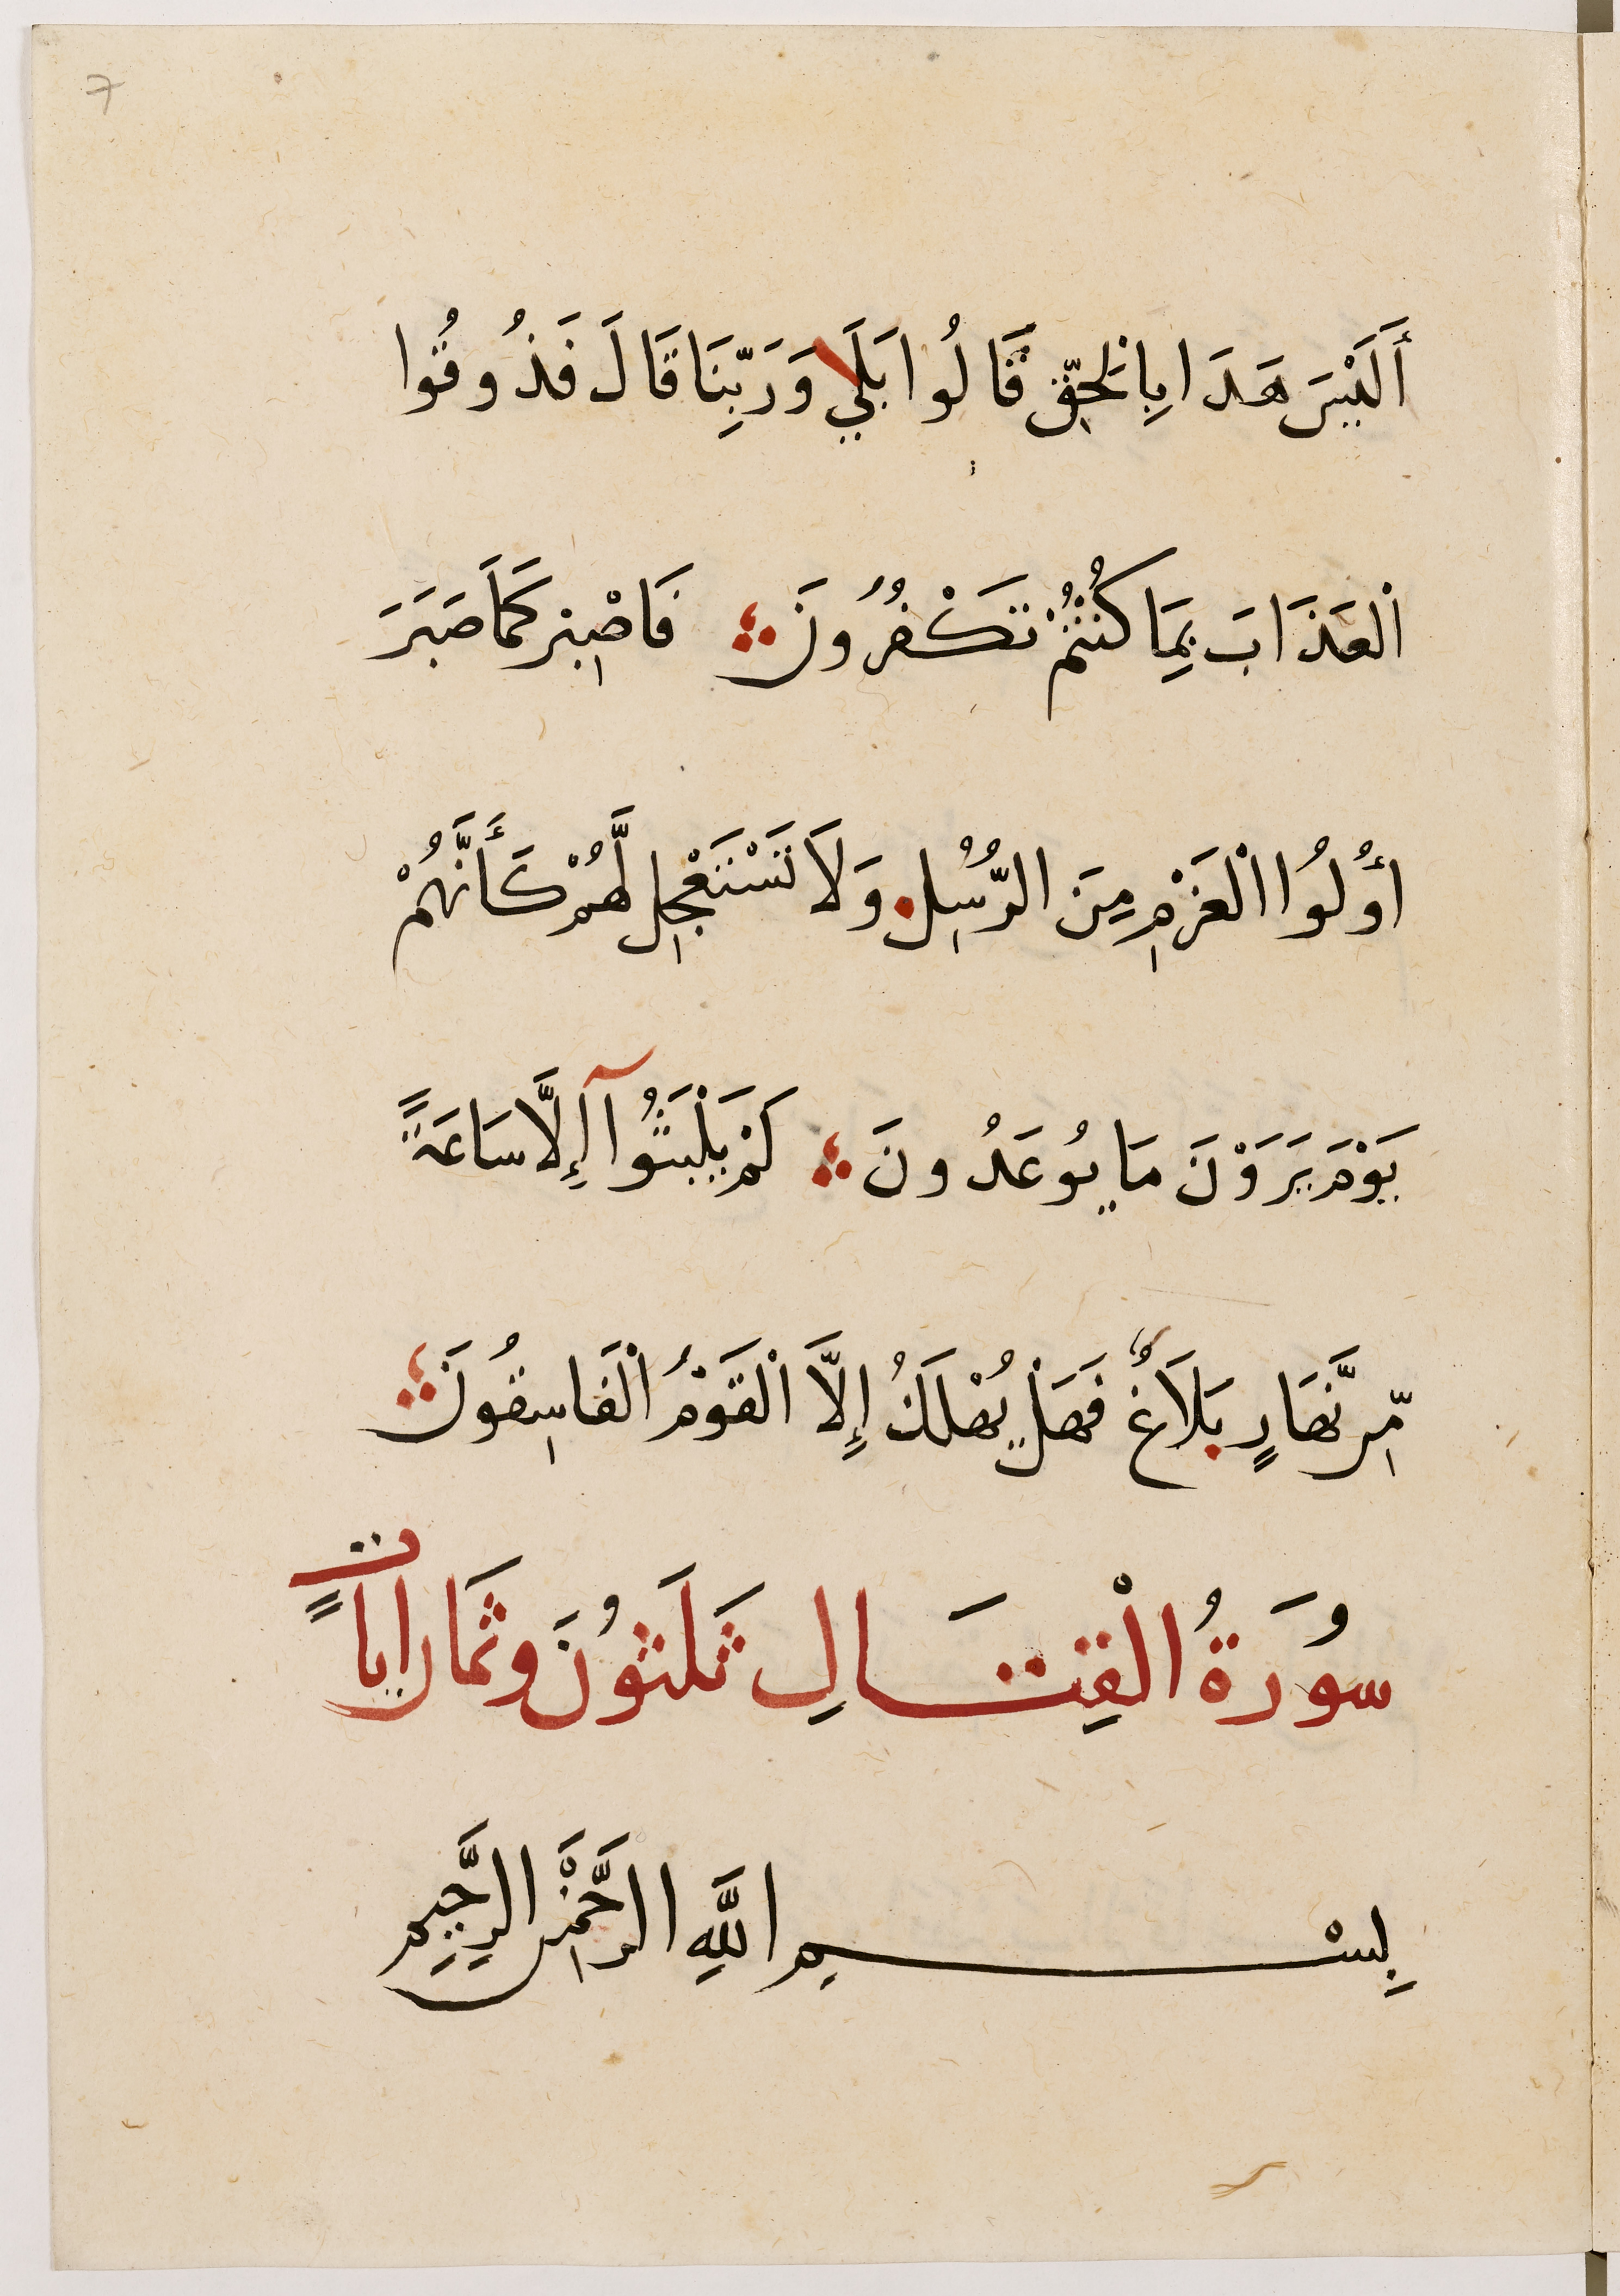 7
أَلَيْسَ هَذَا بِالْحَقِّ قَالُوا بَلَي وَرَبِّنَا قَالَ فَذُوقُوا
اْلعَذَابَ بِمَا كُنْتُمْ تَكْفُرُونَ فَاصْبِرْ كَمَا صَبَرَ
أُوْلُوا الْعَزْمِ مِنَ الرُّسُلِ وَلَا تَسْتَعْجِل لَّهُمْ كَأَنَّهُمْ
يَوْمَ يَرَوْنَ مَا يُوعَدُونَ لَمْ يَلْبَثُوا إِلَّا سَاعَةً
مِّن نَّهَارٍ بَلَاغٌ فَهَلْ يُهْلَكُ إِلَّا اْلقَوْمُ اْلفَاسِقُونَ
سُورَةُ الْقِتَالِ ثَلَثُونَ وثَمَان اياتٍ
بِسْمِ اللَّهِ الرَّحْمَنِ الرَّحِيمِ